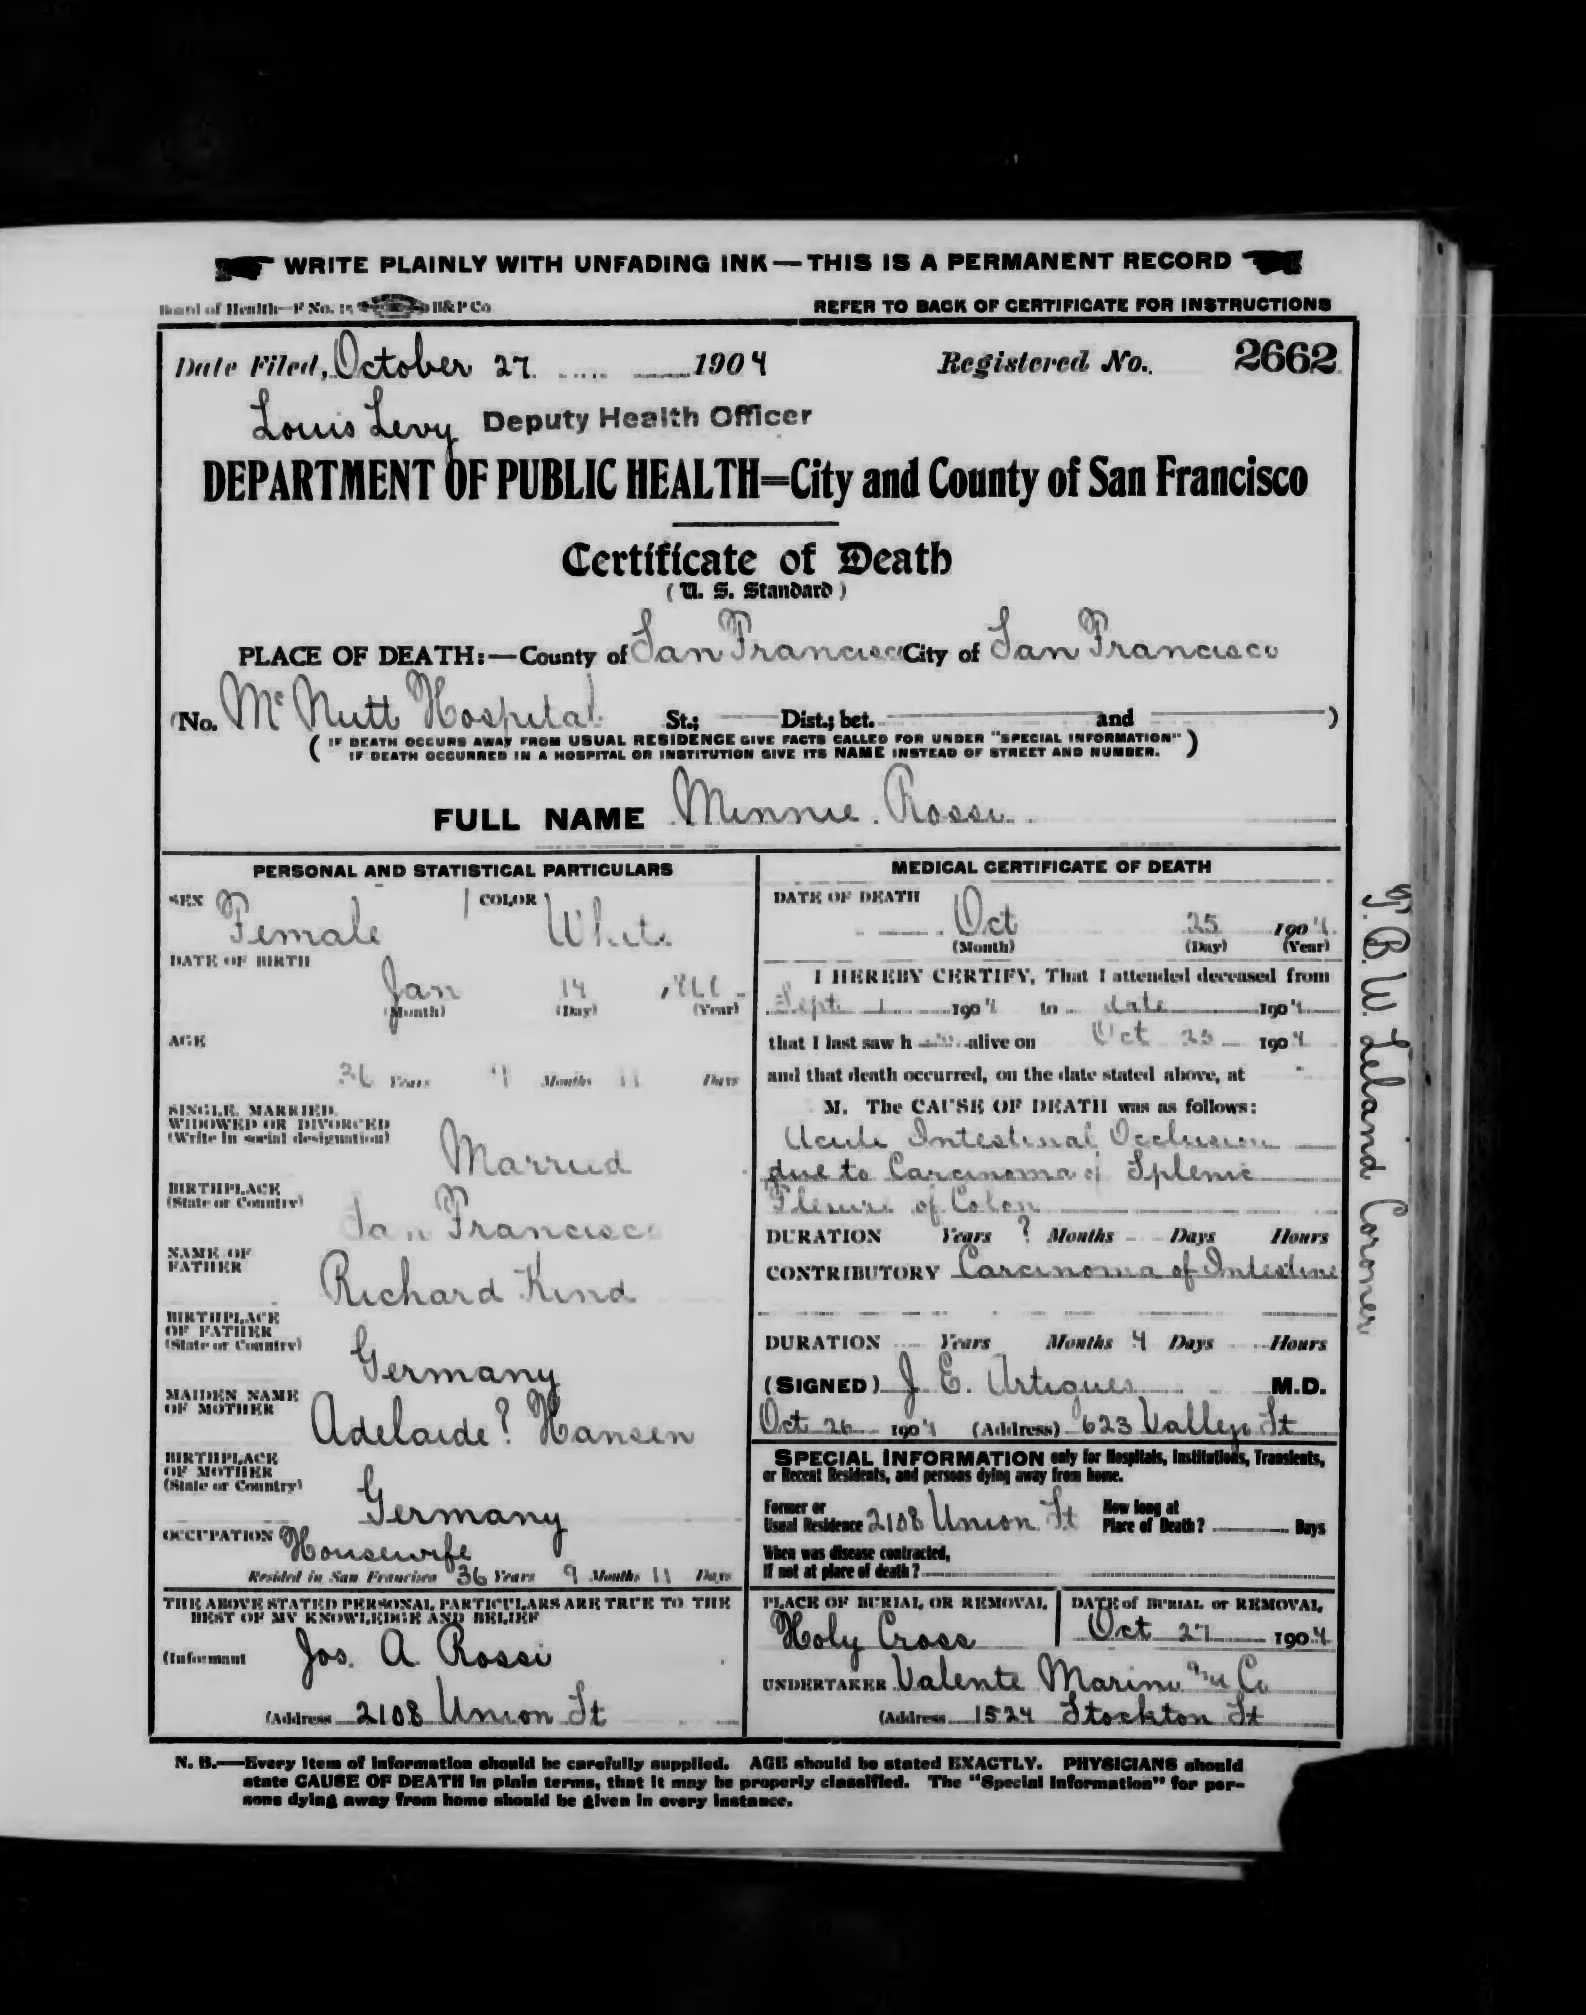 WRITE PLAINLY WITH UNFADING INK—THIS IS A PERMANENT RECORD
Board of Health—F No. 15 H&P Co
REFER TO BACK OF CERTIFICATE FOR INSTRUCTIONS
Date Filed, October 27 1904 Registered No. 2662
Louis Levy Deputy Health Officer
DEPARTMENT OF PUBLIC HEALTH=City and County of San Francisco
Certificate of Death
(U. S. Standard)
PLACE OF DEATH:—County of San Francisco City of San Francisco
(No. McNutt Hospital St.; Dist.; bet. and )
(IF DEATH OCCURS AWAY FROM USUAL RESIDENCE GIVE FACTS CALLED FOR UNDER "SPECIAL INFORMATION"
IF DEATH OCCURRED IN A HOSPITAL OR INSTITUTION GIVE ITS NAME INSTEAD OF STREET AND NUMBER.)
FULL NAME Minnie Rossi
PERSONAL AND STATISTICAL PARTICULARS
SEX Female COLOR White
DATE OF BIRTH
Jan 14
(Month) (Day) (Year)
AGE
36 Years 9 Months 11 Days
SINGLE, MARRIED,
WIDOWED OR DIVORCED
(Write in social designation)
Married
BIRTHPLACE
(State or Country)
San Francisco
NAME OF
FATHER
Richard Kind
BIRTHPLACE
OF FATHER
(State or Country)
Germany
MAIDEN NAME
OF MOTHER
Adelaide? Hansen
BIRTHPLACE
OF MOTHER
(State or Country)
Germany
OCCUPATION Housewife
Resided in San Francisco 36 Years 9 Months 11 Days
THE ABOVE STATED PERSONAL PARTICULARS ARE TRUE TO THE
BEST OF MY KNOWLEDGE AND BELIEF
(Informant Jos. A Rossi
(Address 2108 Union St
MEDICAL CERTIFICATE OF DEATH
DATE OF DEATH
Oct 25 1904
(Month) (Day) (Year)
I HEREBY CERTIFY, That I attended deceased from
Sept 1 1904 to date 1904
that I last saw h alive on Oct 25 1904
and that death occurred, on the date stated above, at
M. The CAUSE OF DEATH was as follows:
Acute Intestinal Occlusion
due to Carcinoma of Splenic
Flexure of Colon
DURATION Years ? Months Days Hours
CONTRIBUTORY Carcinoma of Intestine
DURATION Years Months 4 Days Hours
(SIGNED) J. E. Artigues M.D.
Oct 26 1904 (Address) 623 Vallejo St
SPECIAL INFORMATION only for Hospitals, Institutions, Transients,
or Recent Residents, and persons dying away from home.
Former or
Usual Residence 2108 Union St
How long at
Place of Death? Days
When was disease contracted,
If not at place of death?
PLACE OF BURIAL OR REMOVAL
Holy Cross
DATE of BURIAL or REMOVAL
Oct 27 1904
UNDERTAKER Valente Marini and Co
(Address 1524 Stockton St
T. B. W. Leland Coroner
N. B.—Every item of information should be carefully supplied. AGE should be stated EXACTLY. PHYSICIANS should
state CAUSE OF DEATH in plain terms, that it may be properly classified. The "Special Information" for per-
sons dying away from home should be given in every instance.